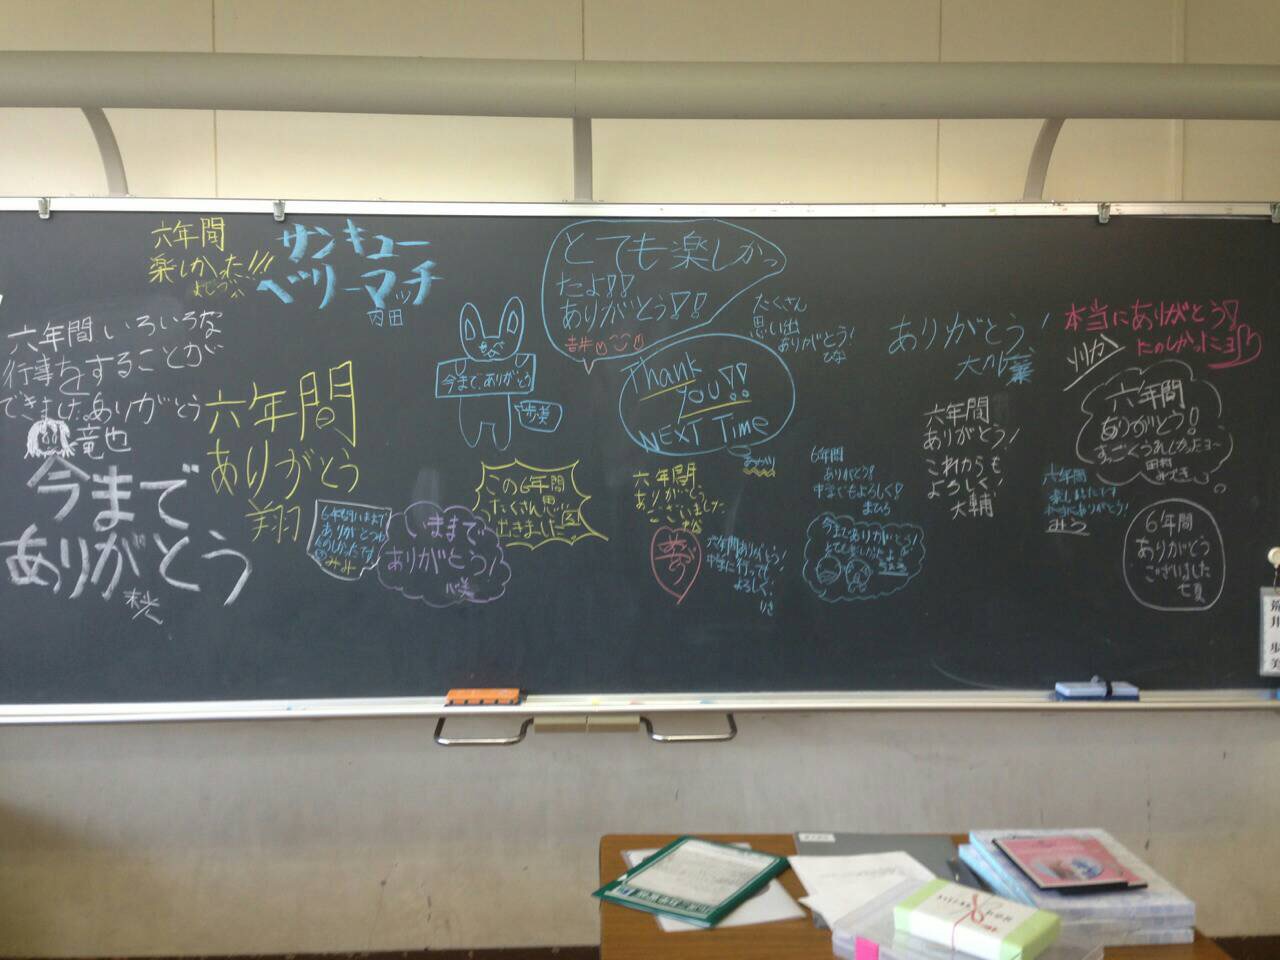 六年間
楽しかった!!!
サンキュー
ベリーマッチ
内田
六年間いろいろな
行事をすることが
できました。ありがとう
竜也
今まで
ありがとう
六年間
ありがとう
翔
今まで、ありがとう
歩美
とても楽しかっ
たよ!!
ありがとう!!
吉井
Thank
you!!
NEXT Time
たくさん
思い出
ありがとう!
ひな
6年間いままで
ありがとう
たのしかったです
みよ
いままで
ありがとう!
心美
この6年間
たくさん思い
出きました
六年間、
ありがとう
ございました
六年間ありがとう!
中学に行っても
よろしく!
りさ
6年間
ありがとう!
中学でもよろしく!
まひろ
今までありがとう!
ありがとう!
六年間
ありがとう!
これからも
よろしく!
大輔
本当にありがとう!
たのしかったヨ
六年間
ありがとう!
すっごくうれしかったヨ~
田村
六年間
楽しかったです
本当にありがとう!
みう
6年間
ありがとう
ございました
七夏